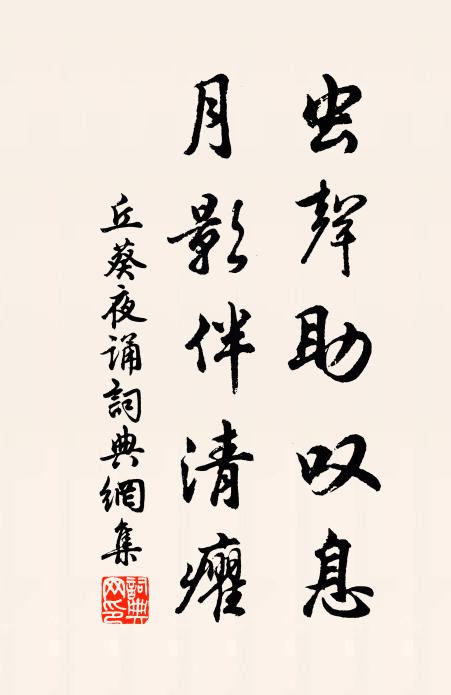 虫聲助叹息
月影伴清癯
丘葵夜诵詞典網集
詞典网印